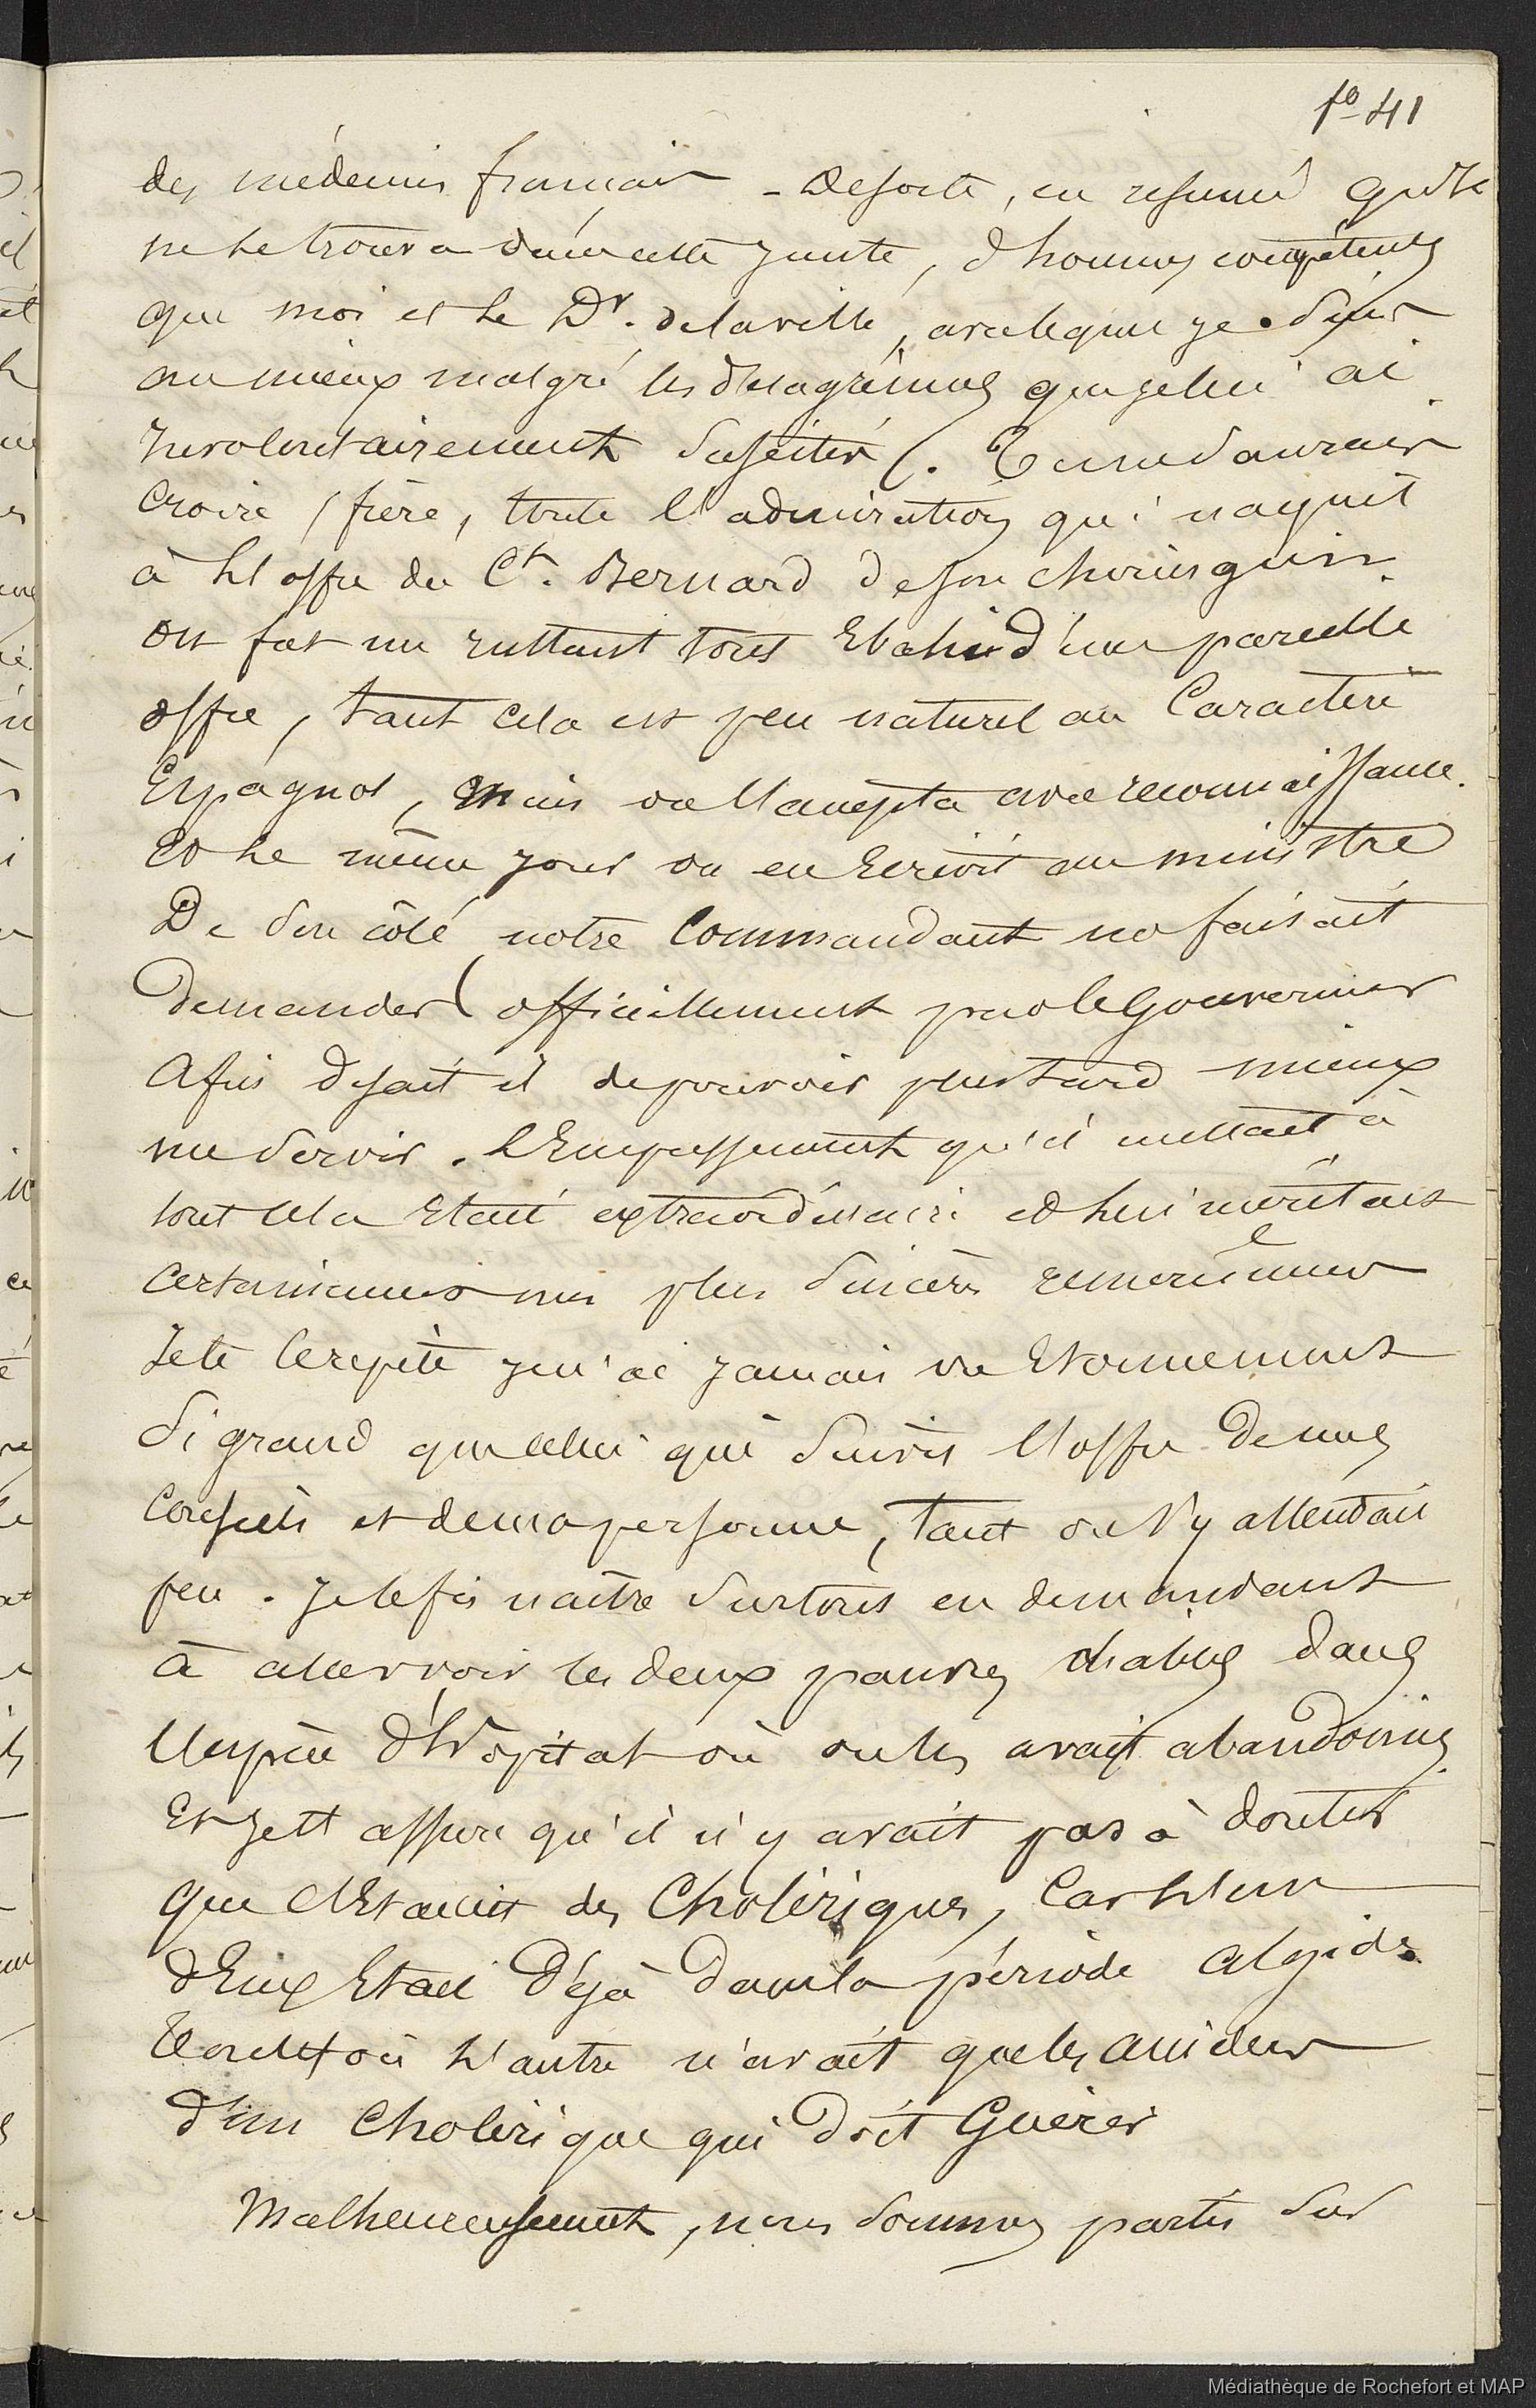 fo 41
des médecins français - Desorte, en resumé qu'il
ne se trouva dans cette junte, d'hommes compétents
que moi et le Dr. delaville, avec lequel je suis
au mieux malgré les désagréments que je lui ai
involontairement suscités. Tu ne saurais
croire frère, toute l'admiration qui naquit
à l'offre du Ct. Bernard de son chirurgien.
on fut un instant tout Ebahi d'une pareille
offre, tant cela est peu naturel au Caractère
Espagnol, Mais on l'accepta avec reconnaissance.
Et le même jour on en Ecrivit au ministre
De son côté notre Commandant me faisait
demander officiellement par le Gouverneur
Afin disait il de pouvoir plus tard mieux
me servir. L'Empressement qu'il mettait à
tout cela Etait extraordinaire et lui méritait
certainement mes plus sincères remerciements
Je te le repète je n'ai jamais vu Etonnement
si grand que celui qui suivit l'offre de mes
Conseils et de ma personne, tant on s'y attendait
peu. Je le fis naître surtout en demandant
à aller voir les deux pauvres diables dans
l'espèce d'hôpital où on les avait abandonnés.
Et je tt assure qu'il n'y avait pas à douter
que c'Etaient des Cholériques, Car l'un
d'Eux Etait Déjà dans la période algide.
Tandis que l'autre n'avait que les accidents
d'un Cholérique qui doit Guérir
Malheureusement, nous sommes partis sur
Médiathèque de Rochefort et MAP